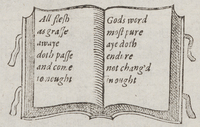 All flesh
as grasse
awaye
doth passe
and come
to nought
Gods word
most pure
aye doth
endure
not chang'd
in ought